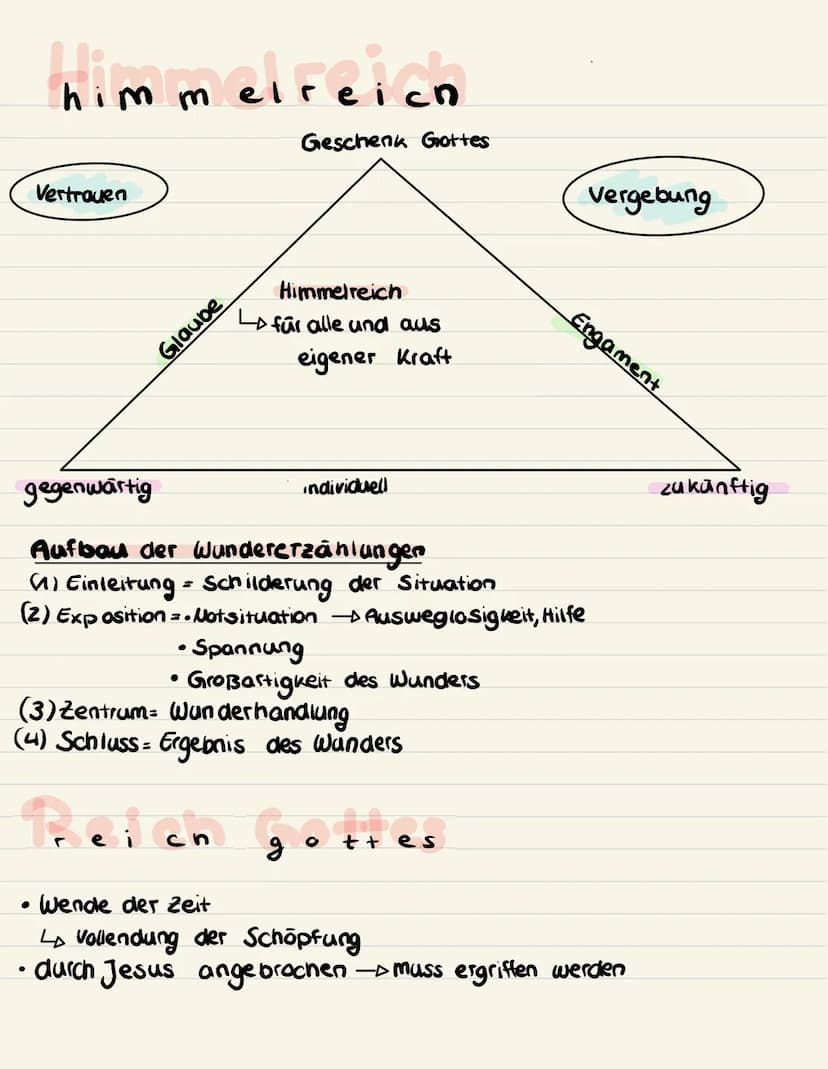 Himmelreich
himmelreich
Geschenk Gottes
Vertrauen
Vergebung
Glaube
Himmelreich
↳ für alle und aus
eigener Kraft
Engament
gegenwärtig
individuell
zukünftig
Aufbau der Wundererzählungen
(1) Einleitung = Schilderung der Situation
(2) Exposition = • Notsituation → Ausweglosigkeit, Hilfe
• Spannung
• Großartigkeit des Wunders
(3) Zentrum = Wunderhandlung
(4) Schluss = Ergebnis des Wunders
Reich Gottes
reich gottes
• Wende der Zeit
↳ Vollendung der Schöpfung
• durch Jesus angebrochen → muss ergriffen werden